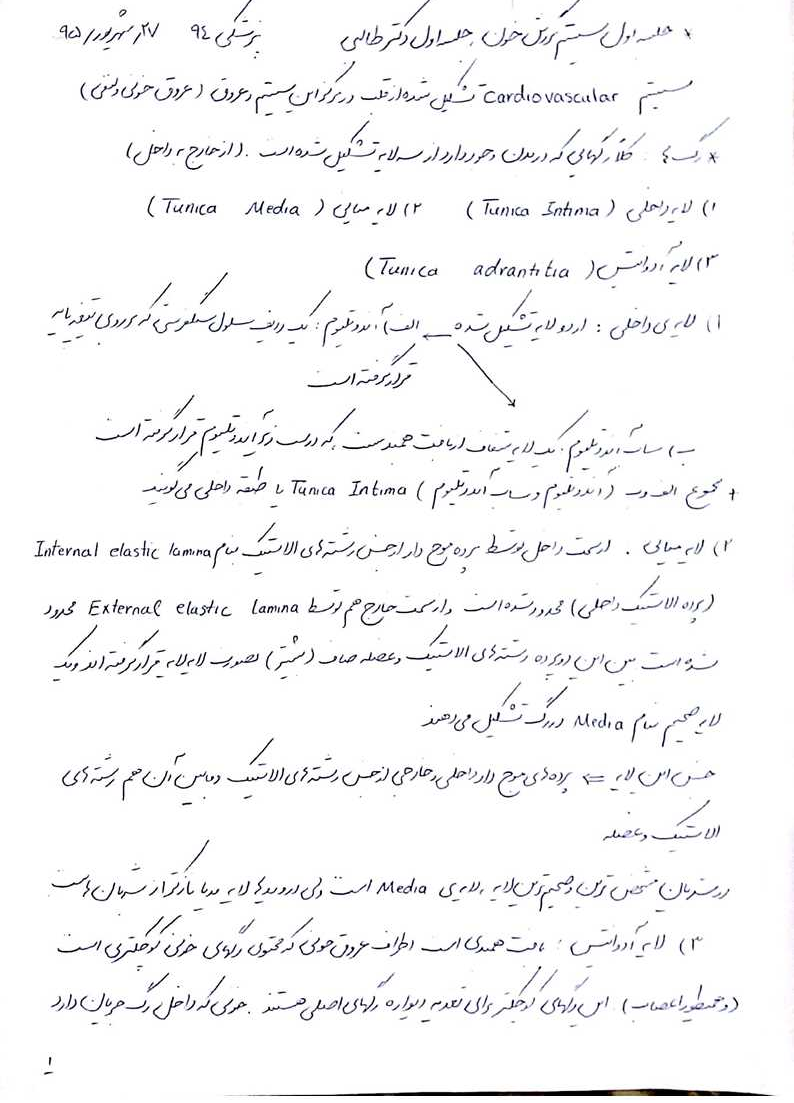 * جلسه اول سیستم گردش خون، جلسه اول دکتر طالبی پزشکی ۹۴ ۲۷ شهریور ۹۵
سیستم Cardiovascular تشکیل شده از قلب در مرکز این سیستم و عروق (عروق خونی و لنفی)
* رگ ها: کلاً رگهایی که در بدن وجود دارد از سه لایه تشکیل شده است. (از خارج به داخل)
۱) لایه داخلی (Tunica Intima) ۲) لایه میانی (Tunica Media)
۳) لایه آدوانتیس (Tunica adrantitia)
۱) لایه ی داخلی: از دو لایه تشکیل شده ← الف) آندوتلیوم: یک ردیف سلول سنگفرشی که بر روی تیغه پایه
قرار گرفته است
ب) ساب آندوتلیوم: یک لایه شفاف از بافت همبند است که درست زیر آندوتلیوم قرار گرفته است
+ مجموع الف و ب (آندوتلیوم و ساب آندوتلیوم) Tunica Intima یا طبقه داخلی می گویند
۲) لایه میانی. از سمت داخل توسط پرده موج دار از جنس رشته های الاستیک بنام Internal elastic lamina
(پرده الاستیک داخلی) محدود شده است و از سمت خارج هم توسط External elastic Lamina محدود
شده است بین این دو پرده رشته های الاستیک و عضله صاف (بیشتر) بصورت لایه لایه قرار گرفته اند و یک
لایه ضخیم بنام Media در رگ تشکیل می دهند
جنس این لایه ⇐ پرده های موج دار داخلی و خارجی از جنس رشته های الاستیک و مابین آن هم رشته های
الاستیک و عضله
در شریان مشخص ترین و ضخیم ترین لایه، لایه ی Media است ولی در وریدها لایه مدیا نازکتر از شریان هاست
۳) لایه آدوانتیس: بافت همبندی است اطراف عروق خونی که محتوی رگهای خونی کوچکتری است
(و همینطور اعصاب). این رگهای کوچکتر برای تغذیه دیواره رگهای اصلی هستند. خونی که داخل رگ جریان دارد
۱